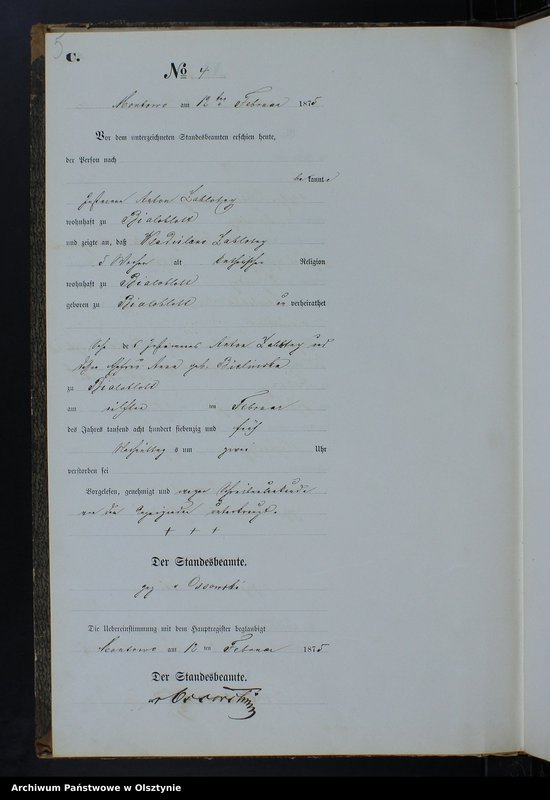 5
C.
No 4
Montowo am 12ten Februar 1875
Vor dem unterzeichneten Standesbeamten erschien heute,
der Person nach
be kannt
Anton
wohnhaft zu Bialoblott
und zeigte an, daß
5 Wochen alt katholischer Religion
wohnhaft zu Bialoblott
geboren zu Bialoblott un verheirathet
Sohn des Anton und
Anna geb.
zu Bialoblott
am eilften ten Februar
des Jahres tausend acht hundert siebenzig und fünf
Nachmittag s um zwei Uhr
verstorben sei
Vorgelesen, genehmigt und wegen
von dem unterkreuzt.
+ + +
Der Standesbeamte.
gez v Ossowski
Die Uebereinstimmung mit dem Hauptregister beglaubigt
Montowo am 12 ten Februar 1875
Der Standesbeamte.
v Ossowski
Archiwum Państwowe w Olsztynie